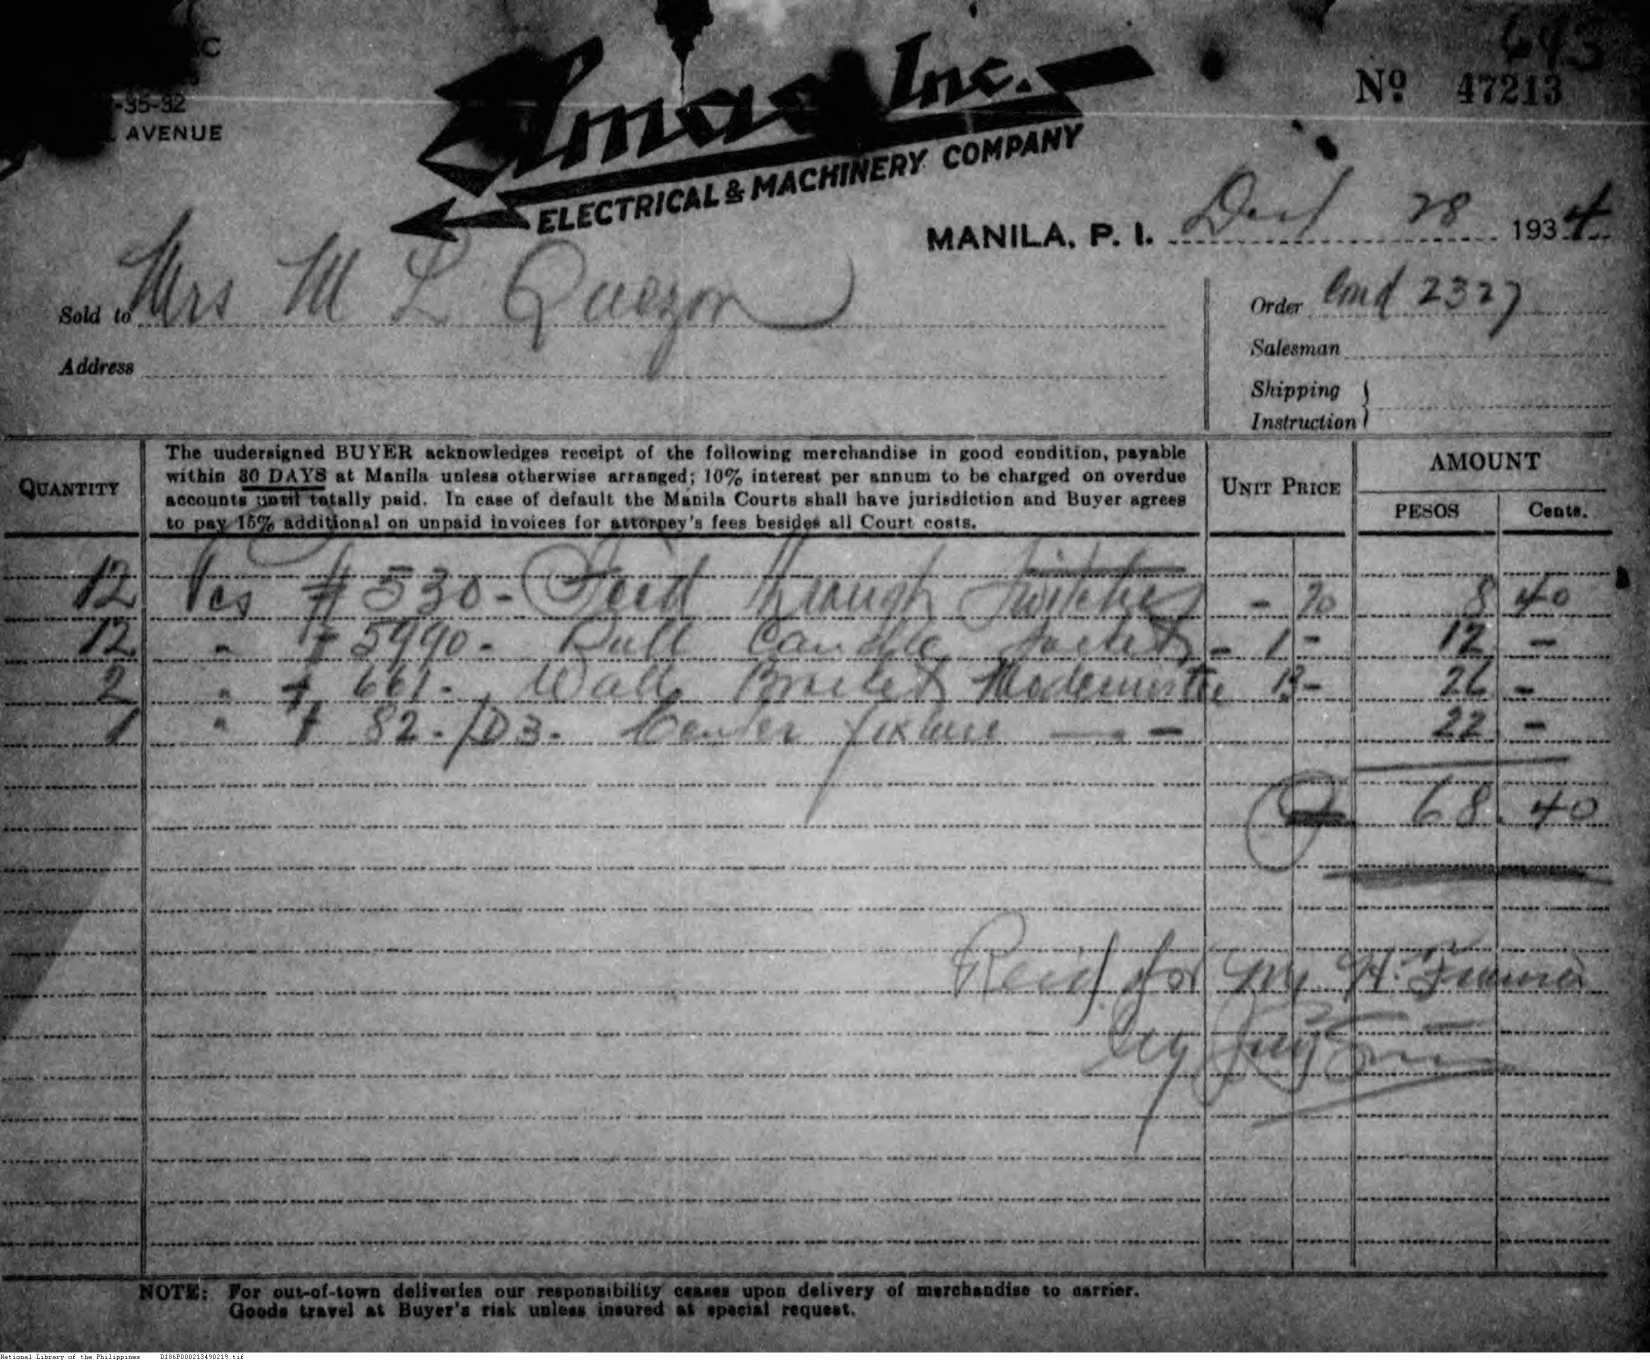 C
643
Nº 47213
-35-32
AVENUE
Elmac Inc.
ELECTRICAL & MACHINERY COMPANY
MANILA, P. I. 28 1934
Sold to Mrs M L Quezon
Order Cmd 2327
Salesman
Address
Shipping
Instruction
QUANTITY
The uudersigned BUYER acknowledges receipt of the following merchandise in good condition, payable
within 30 DAYS at Manila unless otherwise arranged; 10% interest per annum to be charged on overdue
accounts until totally paid. In case of default the Manila Courts shall have jurisdiction and Buyer agrees
to pay 15% additional on unpaid invoices for attorney's fees besides all Court costs.
UNIT PRICE
AMOUNT
PESOS Cents.
12 Pcs # 530 - Feed through Switches - 70 8 40
12 " # 5990 - Candle Sockets - 1 - 12 -
2 " # 661 - Wall Bracket Modernistic 13 - 26 -
1 " # 82 - /D3 - Center fixture — - 22 -
68.40
Recd for Mr. H.
by
NOTE: For out-of-town deliveries our responsibility ceases upon delivery of merchandise to carrier.
Goods travel at Buyer's risk unless insured at special request.
National Library of the Philippines D106P000213490219.tif